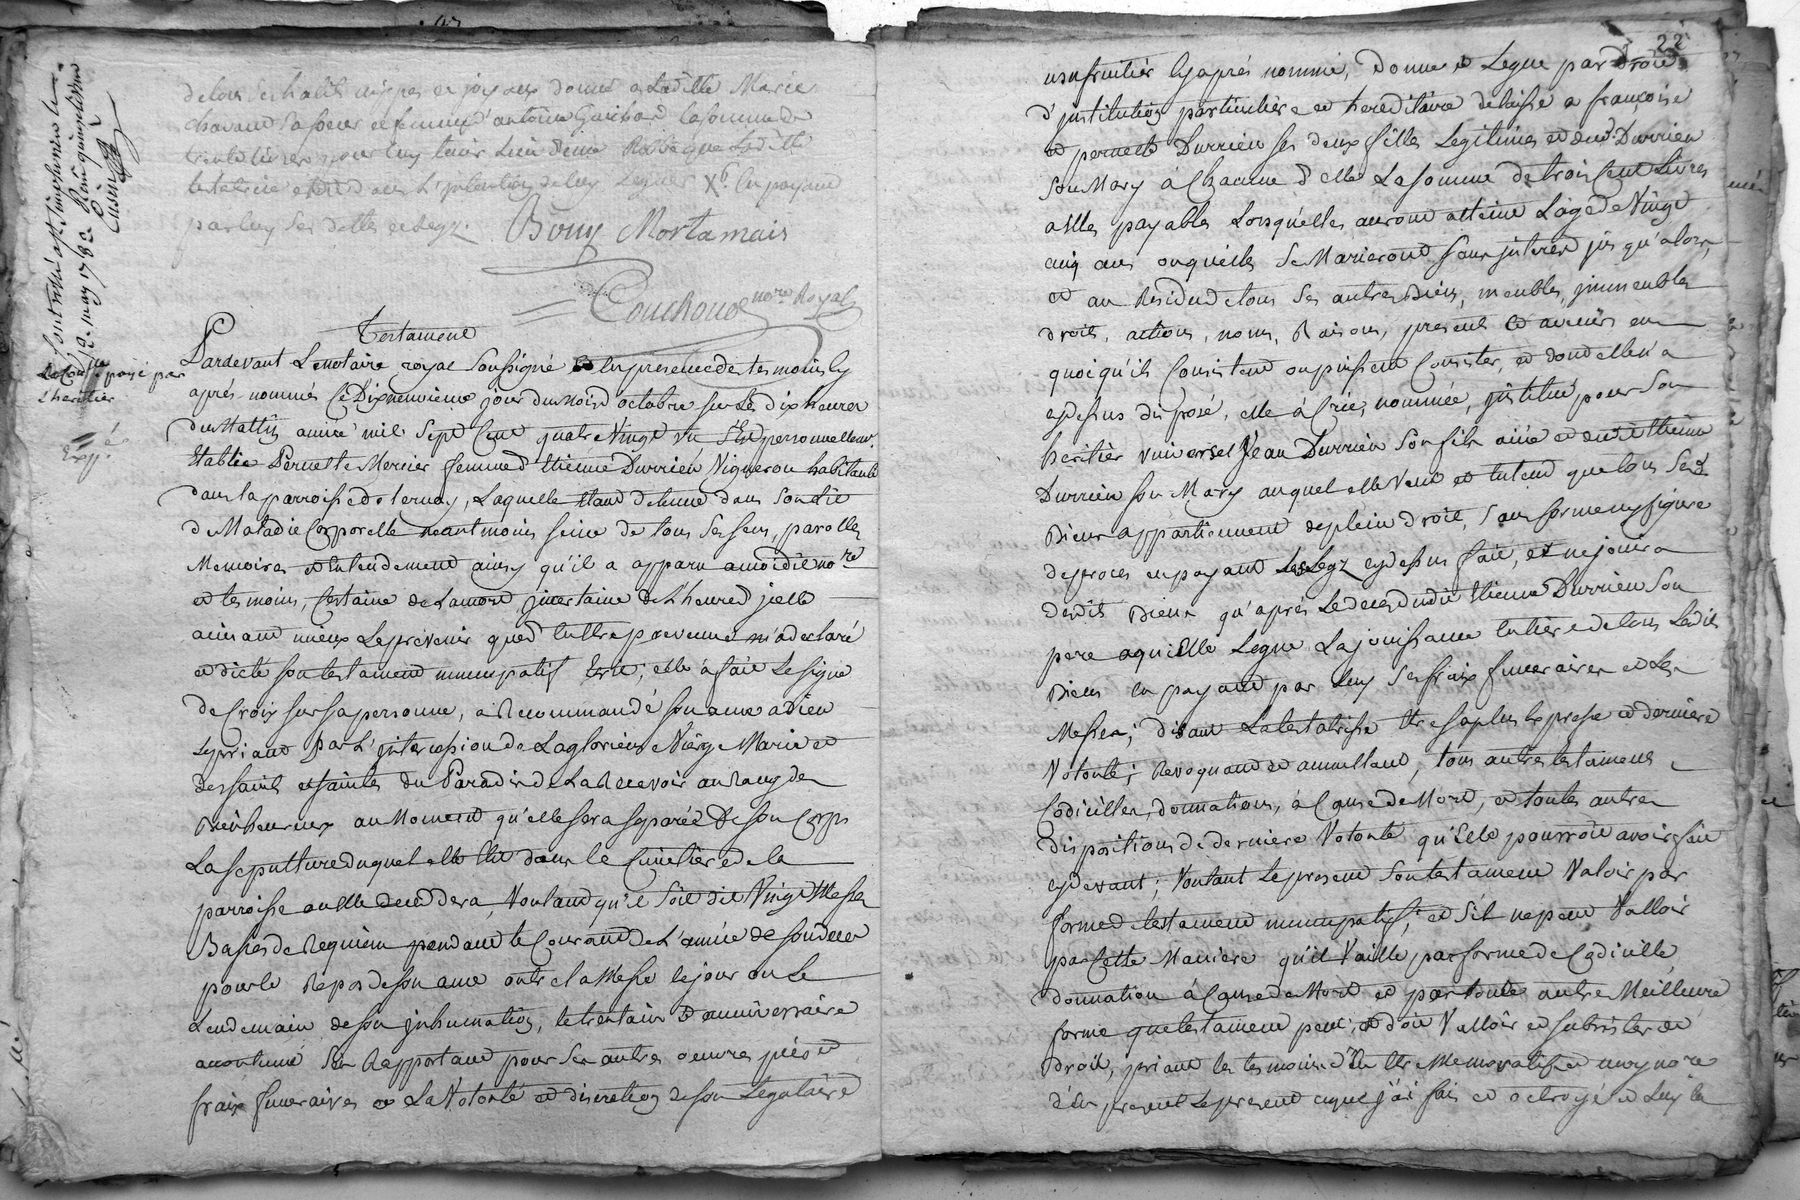 de tous ses habits nippes et joyaux donné a Laditte Marie
chavant sa soeur et femme d'antoine Guichard la somme de
trente livres pour luy tenir Lieu
testatrice L'intention de luy Leguer Xb. En payant
par luy ses dettes et Legz.
Bouy Mortamais
Couchoud nore Royal
controllé a st. simphorien le
9e. may 1782
payé par
L'heritier
Exp.é
Testament
Pardevant Le notaire royal soussigné et En presence des temoins Cy
aprés nommés Ce Dixneuvieme jour du mois d'octobre sur Les dix heures
du Mattin année mil sept Cent quatre Vingt un S'Est personnellemt.
Etablie Pernette Mercier femme d'Etienne Durrieu Vigneron habitante
dans la parroisse de ternay, Laquelle Etant detenue dans son Lit
de Maladie Corporelle neantmoins seine de tous ses sens, parolle,
Memoire et Entendement ainsy qu'il a apparu a moidit nore
et temoins, Certaine de La mort, jncertaine de L'heure d'jcelle
aimant mieux Le prevenir que d'en Etre prevenue m'a declaré
et dicté son testament nuncupatif Ecrit; elle a fait Le signe
de Croix sur sa personne, a Recommandé son ame a dieu
Le priant par L'jntercession de La glorieuse Vierge Marie et
des saints et saintes du Paradis de La Recevoir au Rang des
Bienheureux au Moment qu'elle sera separée de son Corps
La sepulture duquel elle Elit dans le Cimetiere de la
parroisse ou Elle decedera, Voulant qu'il soit dit Vingt Messes
Basses de Requiem pendant le Courant de L'année de son deces
pour le Repos de son ame outre la Messe le jour ou Le
Lendemain de son jnhumation, le trentain et anniversaire
accoutumé se Rapportant pour ses autres oeuvres pies et
frais funeraires a La Volonté et discretion de son Legataire
22
usufruitier Cy aprés nommé, Donne et Legue par Droit
d'jnstitution particuliere et hereditaire delaisse a françoise
et pernette Durrieu ses deux filles Legitimes et dud. Durrieu
son Mary à Chacune d'elles La somme de trois Cent Livres
a Elles payables Lorsqu'elles auront atteint L'age de Vingt
cinq ans ou qu'elles se Marieront sans jnteret jusqu'alors,
et au Residu de tous ses autres Biens, meubles, jmmeubles
droits, actions, noms, Raisons, presents et avenirs en
quoi qu'ils Consistent ou puissent Consister, et dont elle n'a
cy dessus disposé, elle à Crée, nommée, jnstitué, pour son
heritier universel Jean Durrieu son fils ainé et dudit Etienne
Durrieu son Mary auquel elle Veut et Entend que tous sesd.
Biens appartiennent de plein droit, sans forme ny figure
de proces en payant Les Legz cy dessus fait, et ne jouira
desdits Biens qu'aprés Le deces dudit Etienne Durrieu son
pere a qui Elle Legue La jouissance Entiere de tous Lesdits
Biens en payant par Luy ses fraix funeraires et Les
Messes; disant La testatrisse Etre sa plus Expresse et derniere
Volonté; Revoquant et annullant, tous autres testaments
Codicilles, donnations, à Cause de Mort, et toutes autres
dispositions de derniere Volonté qu'Elle pourroit avoir fait
cy devant; Voulant Le present son testament Valoir par
forme de testament nuncupatif; et s'il ne peut Valloir
par Cette Maniere qu'il Vaille par forme de Codicille,
donnation à Cause de Mort et par toute autre Meilleure
forme que testament peut et doit Valloir et subsister de
Droit, priant les temoins d'En Etre Memoratifs et moy nore
d'En prendre Le present acque j'ai fait et octroyé et Luy la